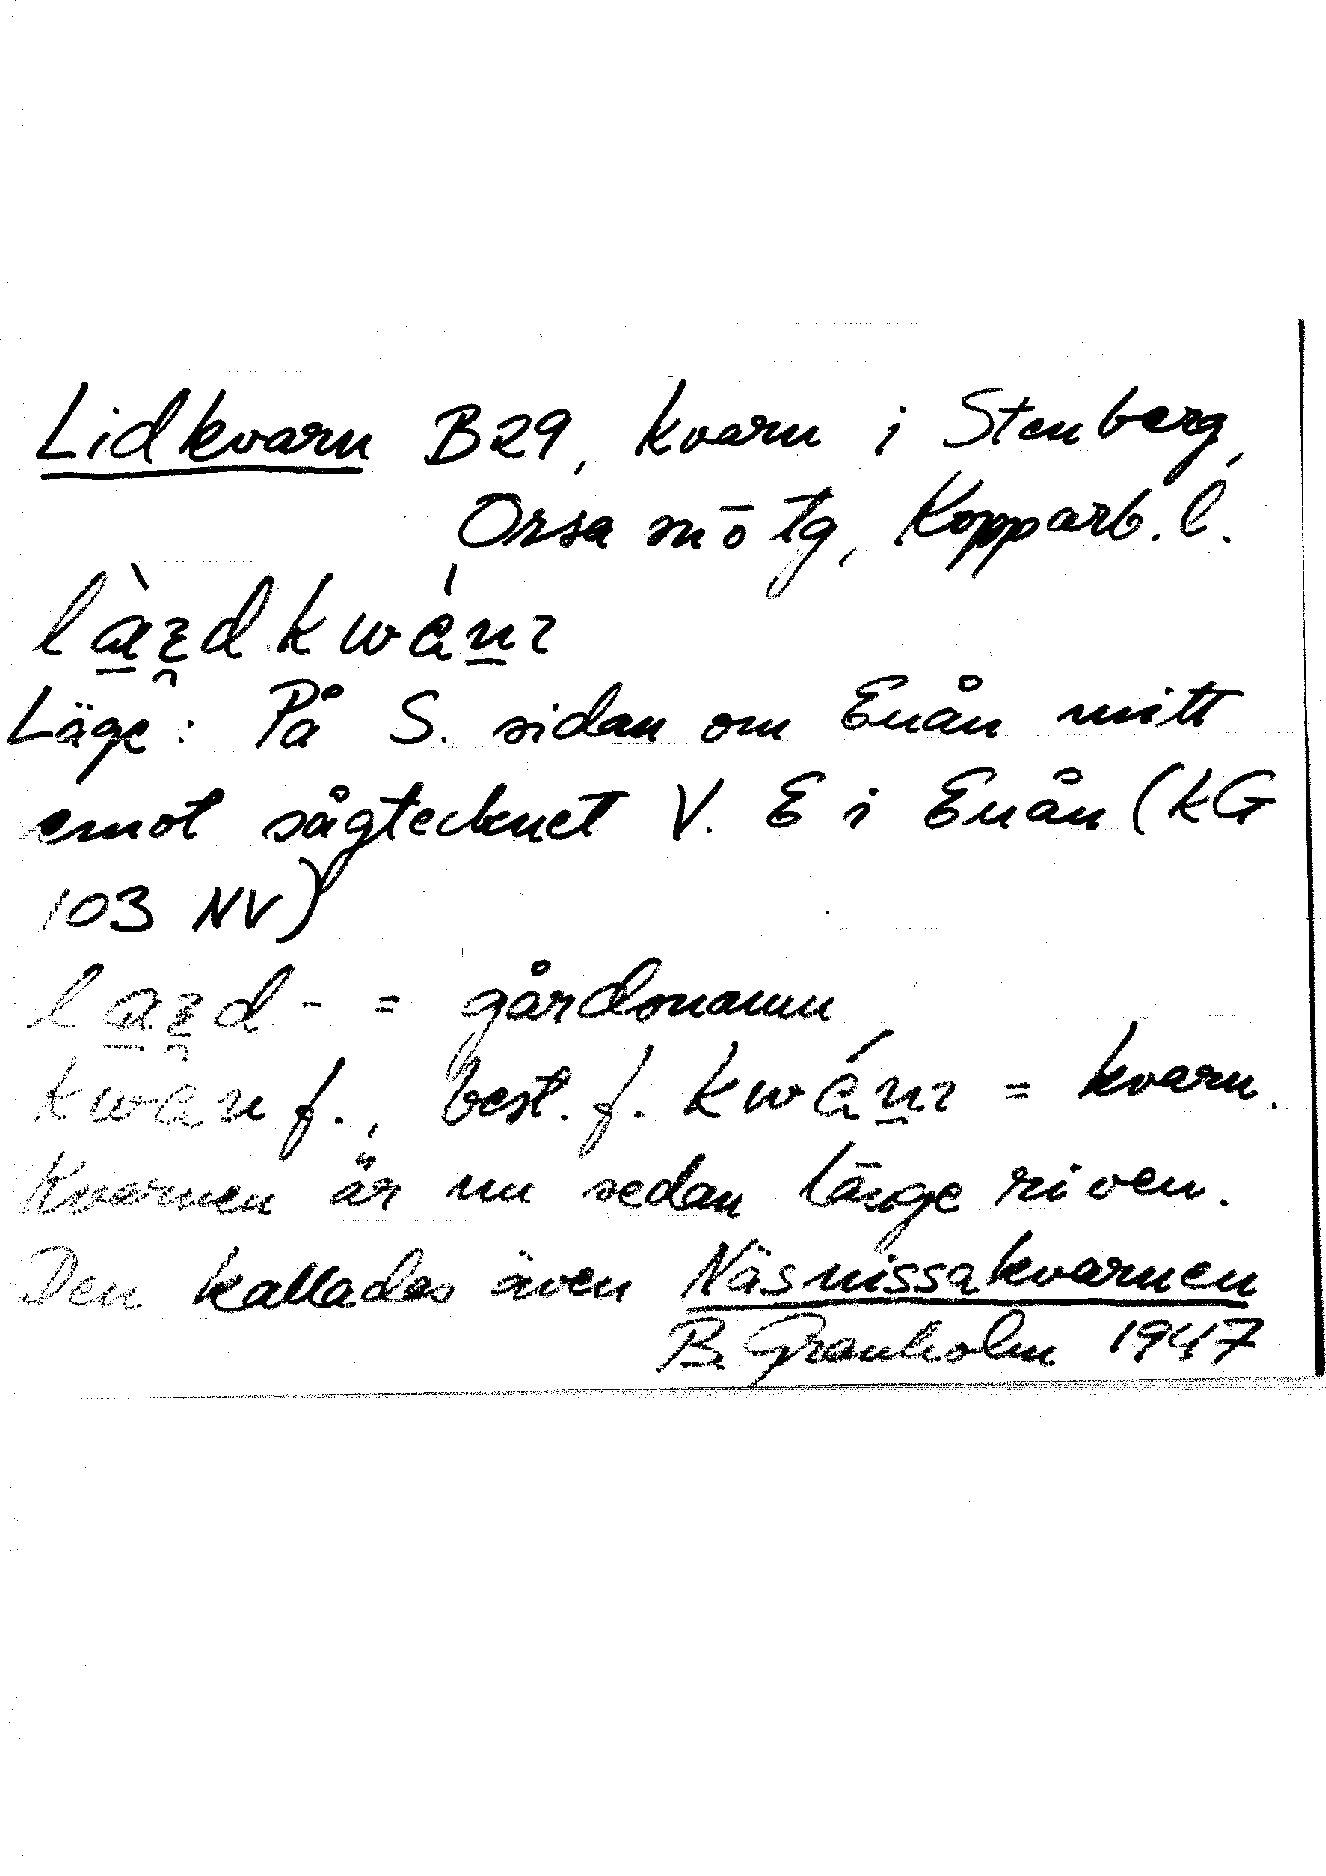 Lidkvarn B29, kvarn i Stenberg,
Orsa m ō tg, Kopparb. l.
Läge: På S. sidan om Enån mitt
emot sågtecknet V. E i Enån (KG
103 NV)
= gårdsnamn
f., best. f. = kvarn.
Kvarnen är nu sedan länge riven.
Den kallades även Näsnissakvarnen
B. Granholm 1947